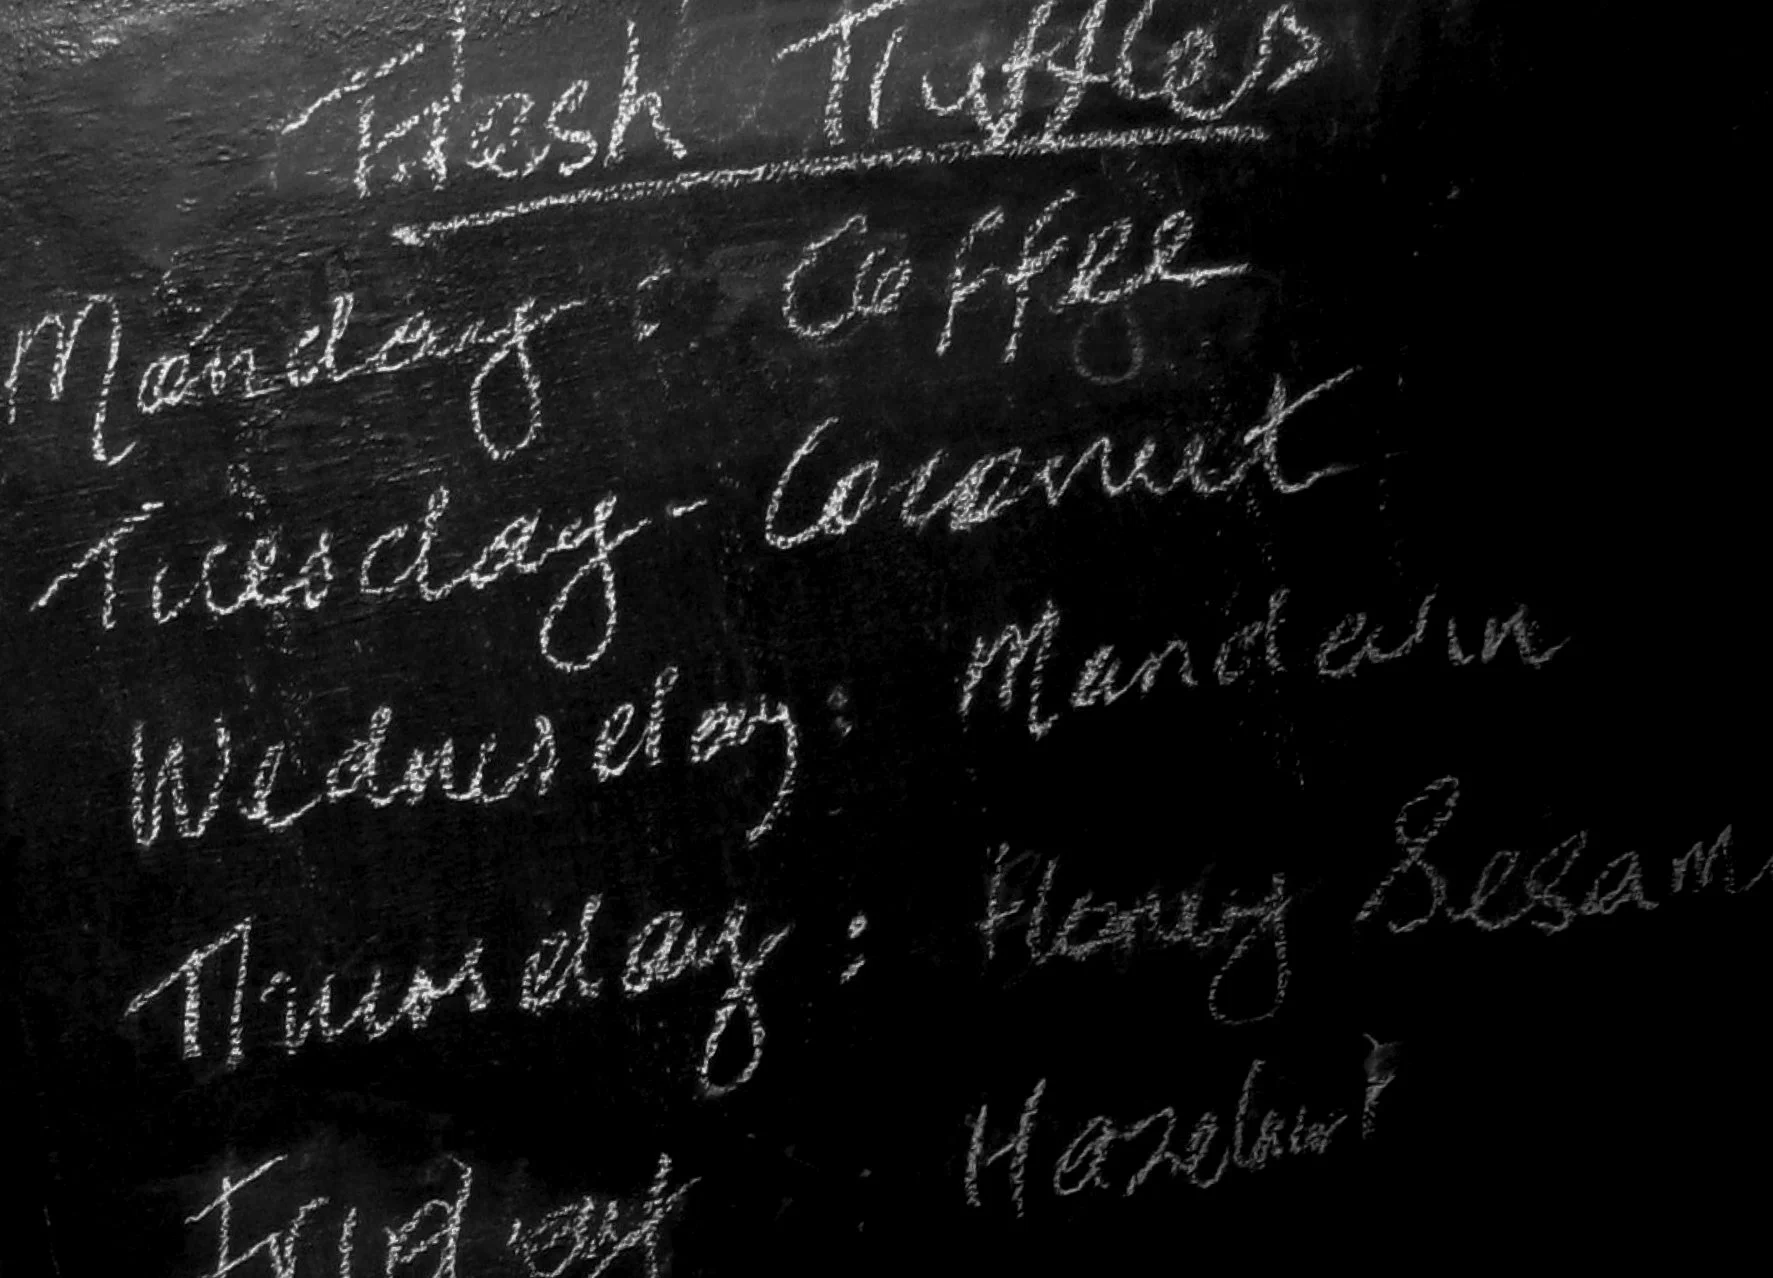 Fresh Truffles
Monday: Coffee
Tuesday - Coconut
Wednesday: Mandarin
Thursday: Honey Sesam
Friday Hazelnut